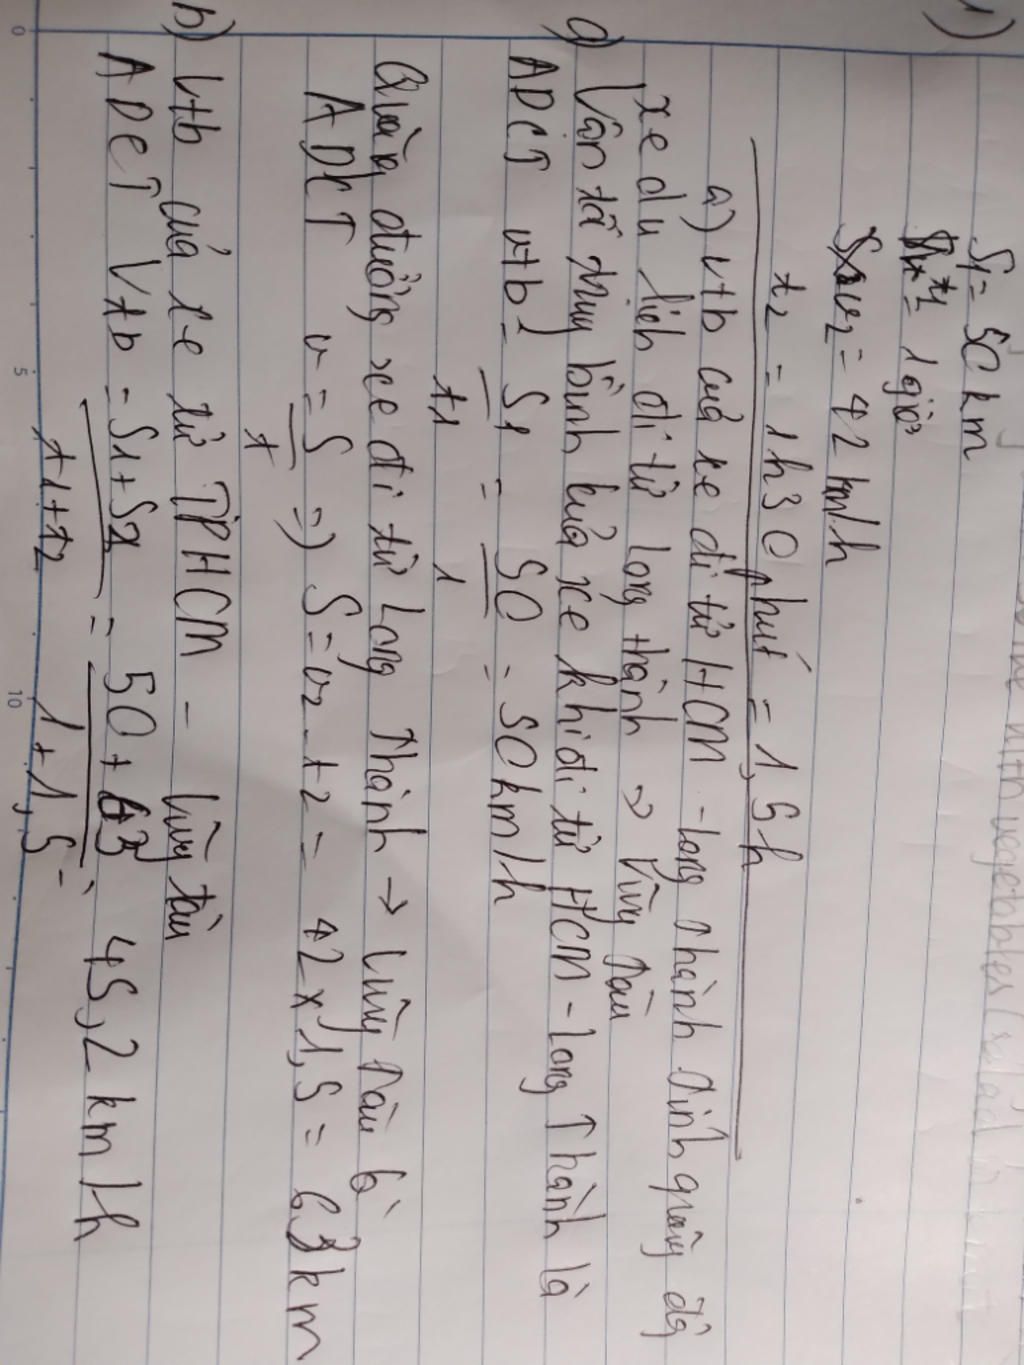 1)
S1 = 50 km
t1 = 1 giờ
v2 = 42 km/h
t2 = 1h30 phút = 1,5h
a) vtb của xe đi từ HCM - Long Thành tính quãng đg
xe du lịch đi từ Long thành → Vũng Tàu
a) Vận tốc trung bình của xe khi đi từ HCM - Long Thành là
ADCT vtb = S1/t1 = 50/1 = 50 km/h
Quãng đường xe đi từ Long Thành → Vũng Tàu là
ADCT v = S/t => S = v2 . t2 = 42 x 1,5 = 63 km
b) Vtb của xe từ TPHCM - Vũng tàu
ADCT Vtb = S1+S2/t1+t2 = 50+63/1+1,5 = 45,2 km/h
0 5 10